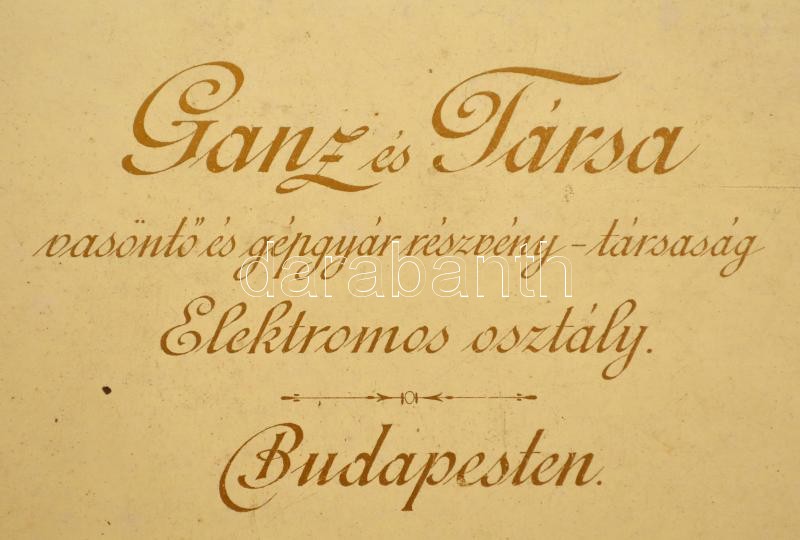 Ganz és Társa
vasöntő és gépgyár részvény-társaság
darabanth
Elektromos osztály.
Budapesten.